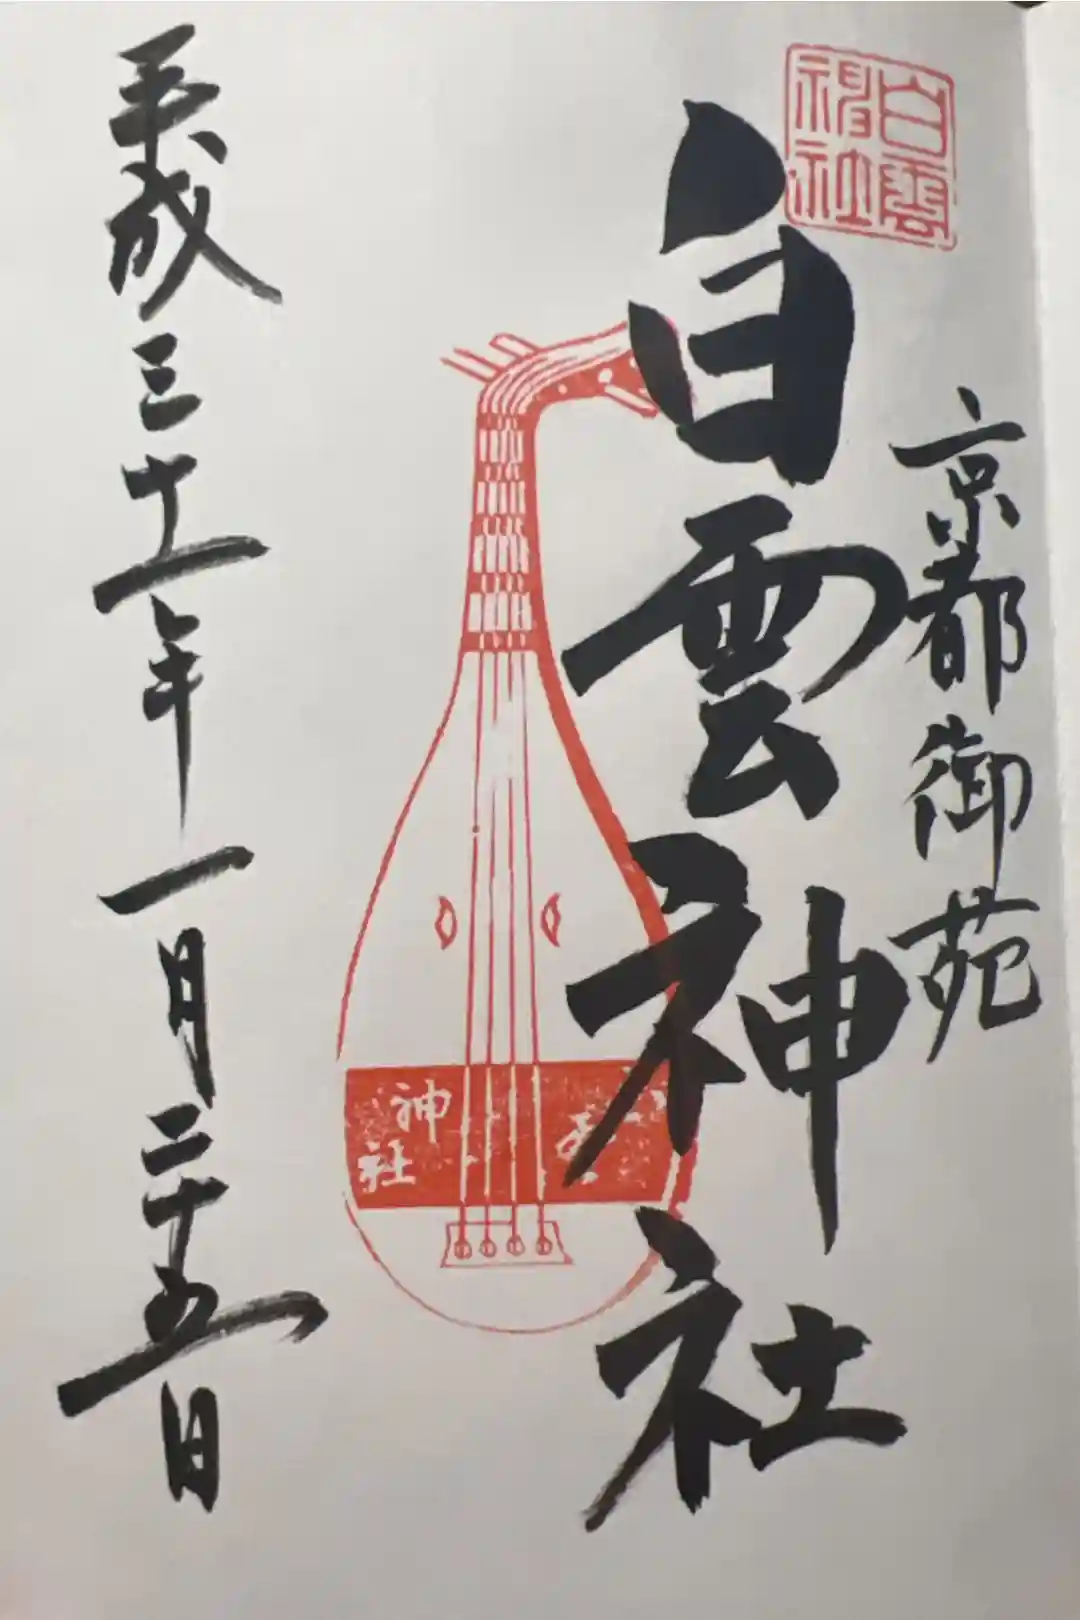 白雲
神社
京都御苑
白雲神社
神社
平成三十一年一月二十五日